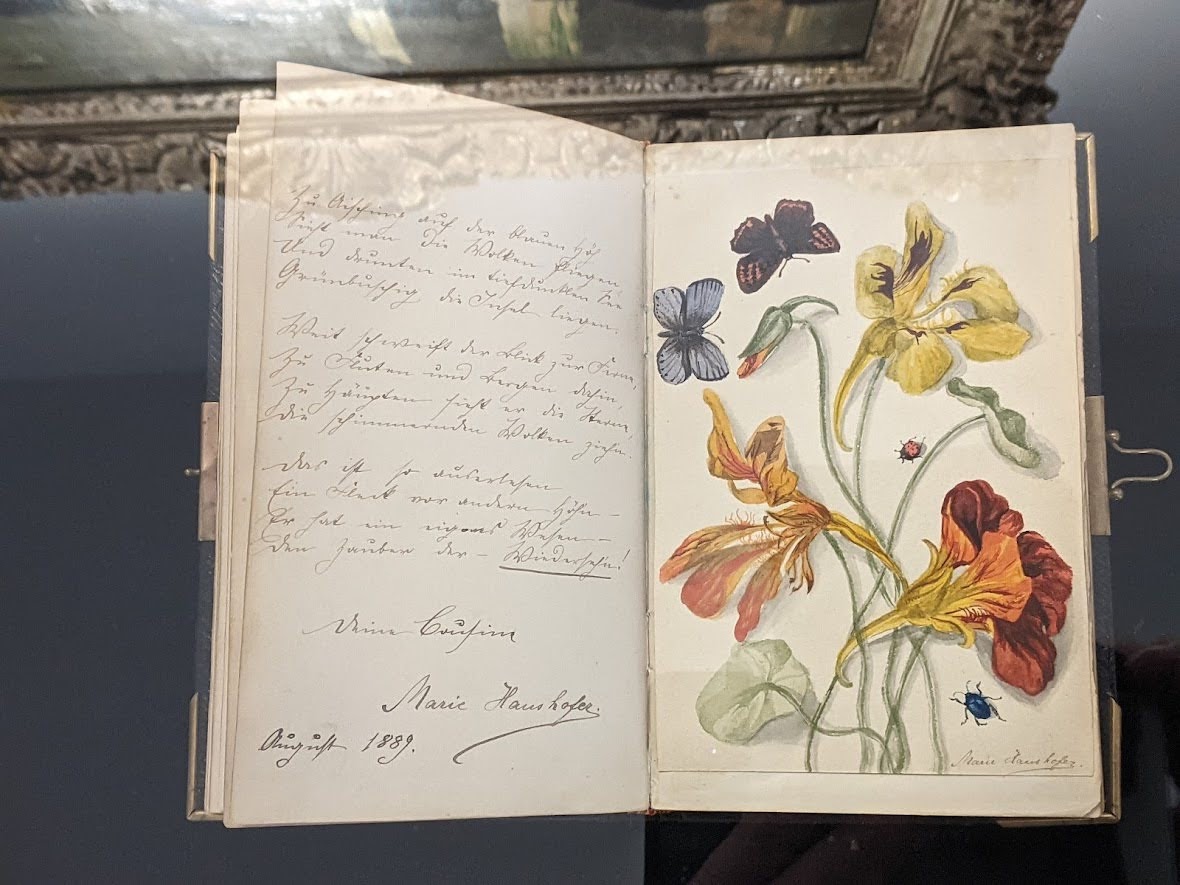 Zu Aisching auf der blauen Höh
Sieht man die Wolken fliegen
Und drunten im tiefdunklen See
Grünbuschig die Insel liegen.
Weit schweift der Blick zur Ferne,
Zu Fluten und Bergen dahin,
Zu Häupten sieht er die Sterne,
Die schimmernden Wolken ziehn.
Das ist so auserlesen
Ein Fleck vor andern Höhn –
Er hat ein eignes Wesen –
Den Zauber der – Wiedersehn!
Deine Cousine
Marie Haushofer.
August 1889.
Marie Haushofer.